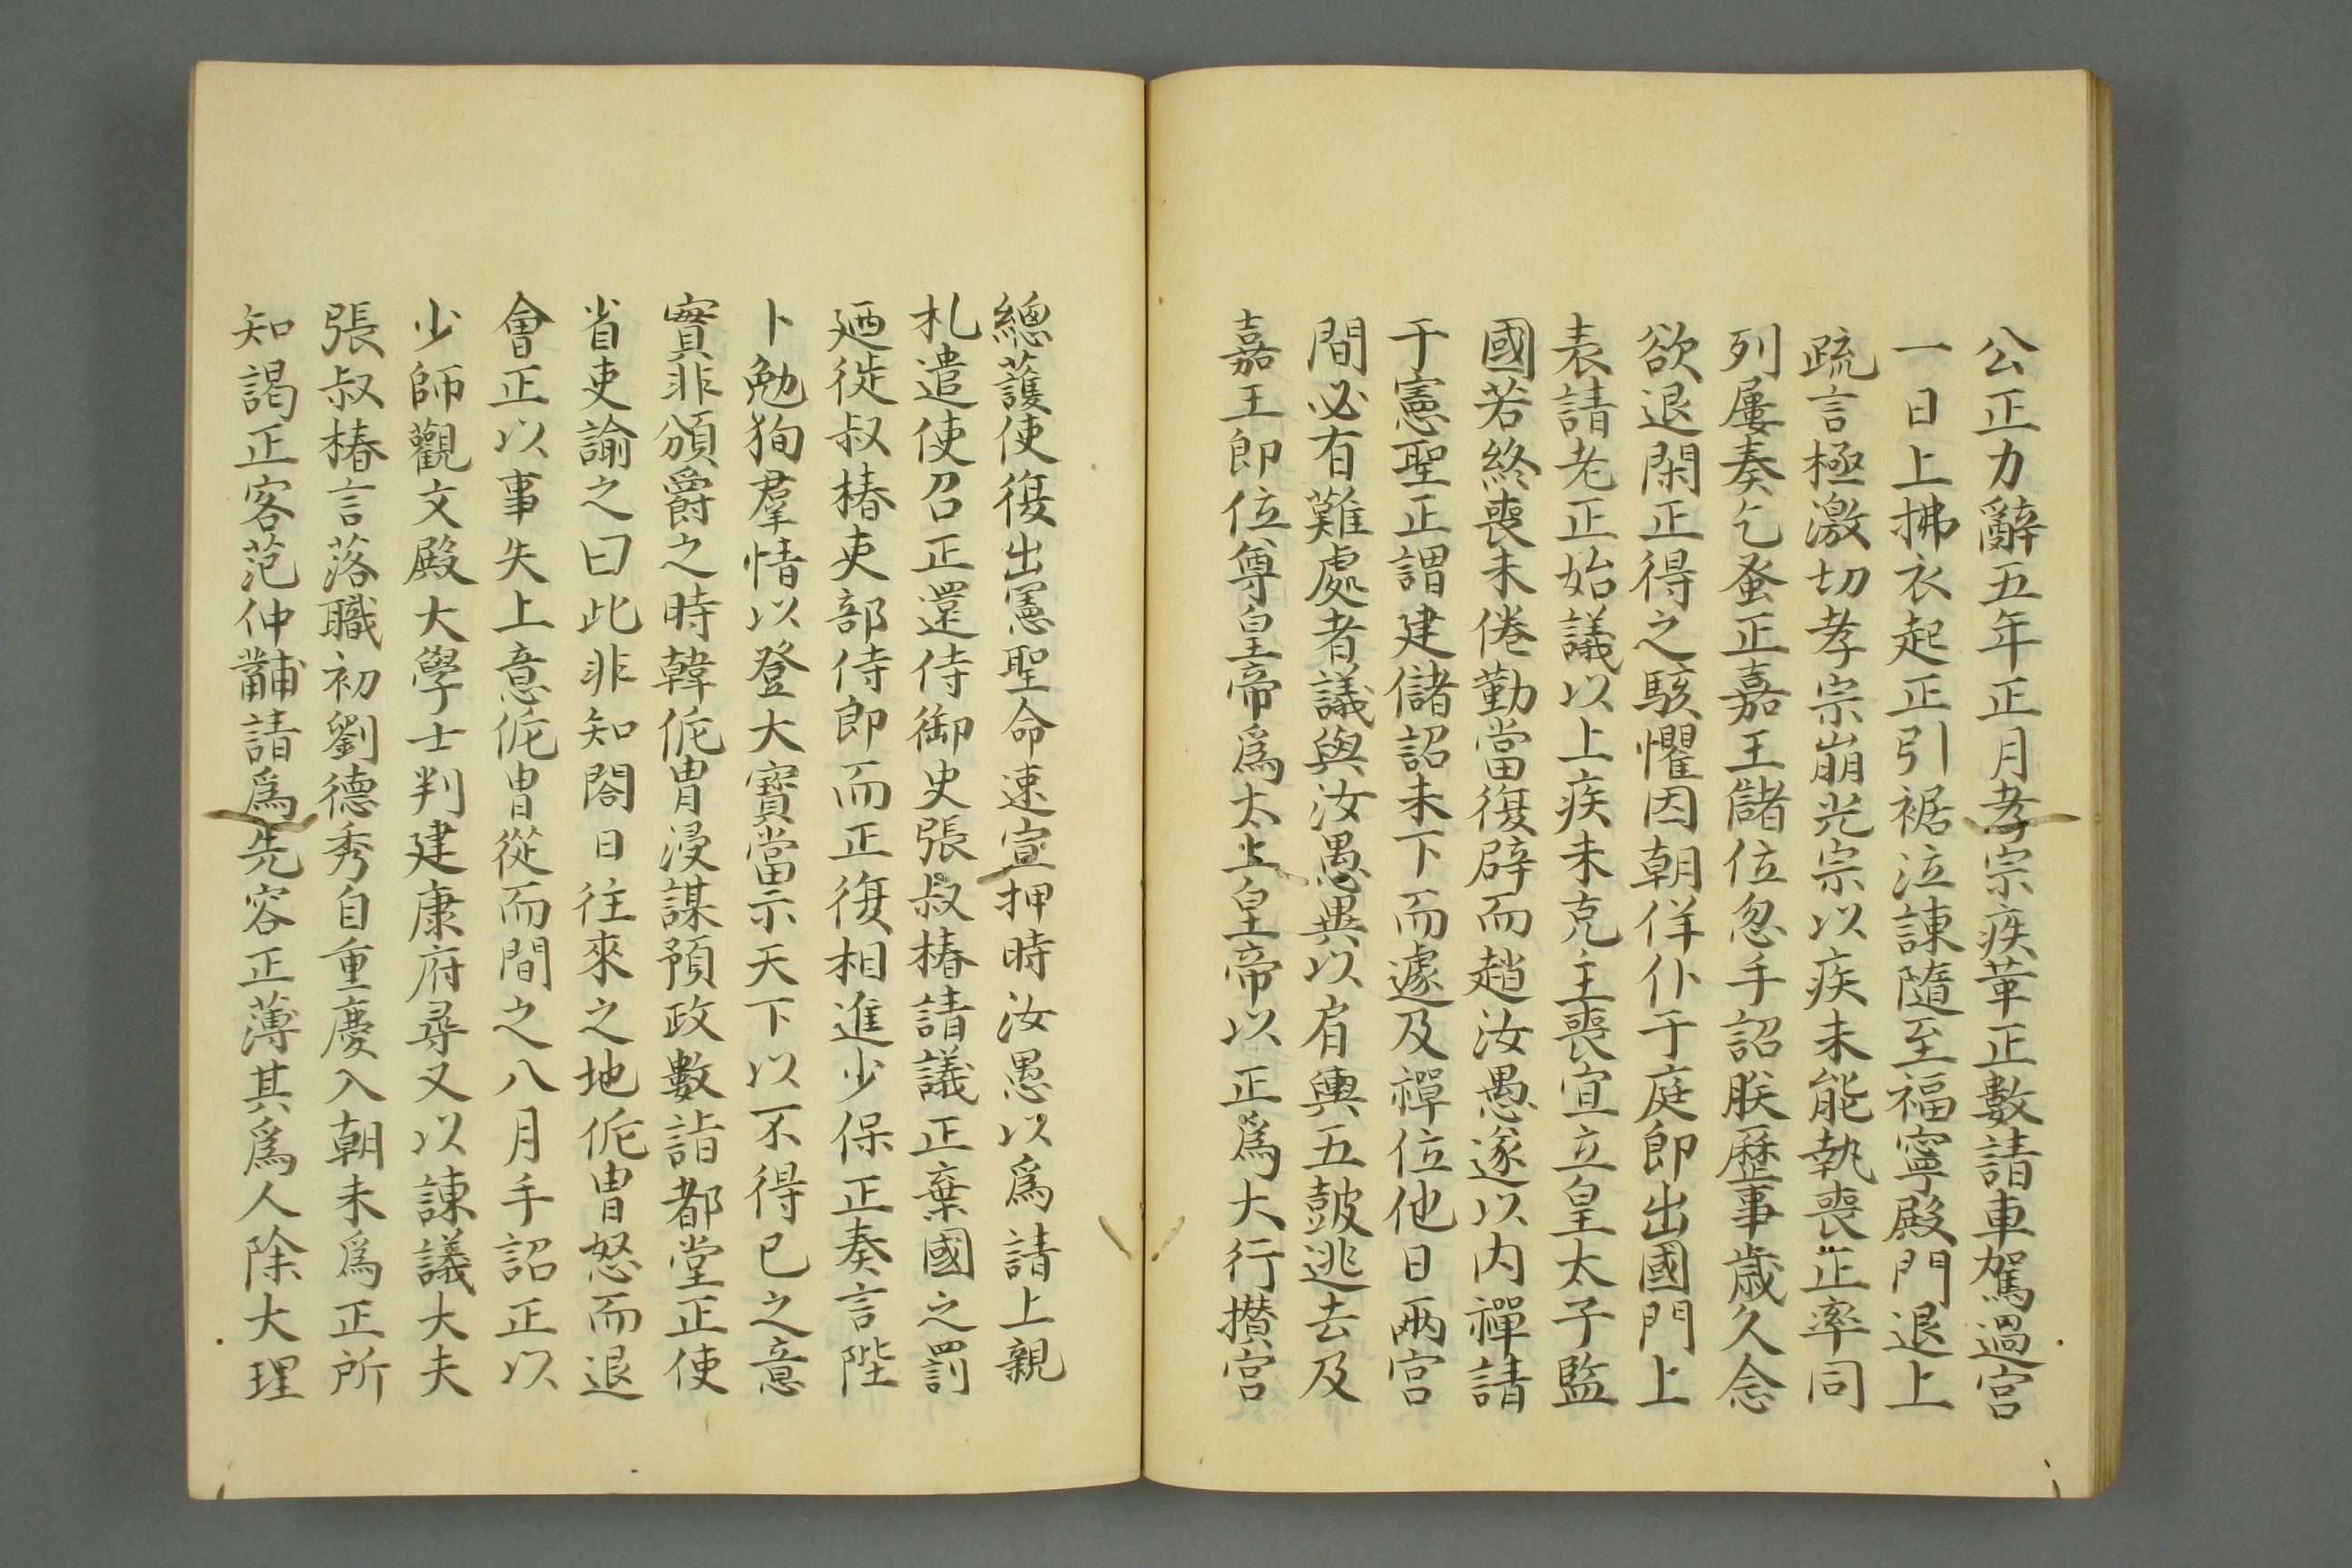 公正力辭五年正月孝宗疾革正數請車駕過宮
一日上拂衣起正引裾泣諫隨至福寧殿門退上
疏言極激切孝宗崩光宗以疾未能執喪正率同
列屢奏乞蚤正嘉王儲位忽手詔朕歷事歲久念
欲退閑正得之駭懼因朝佯仆于庭即出國門上
表請老正始議以上疾未克主喪宜立皇太子監
國若終喪未倦勤當復辟而趙汝愚遂以內禪請
于憲聖正謂建儲詔未下而遽及禪位他日兩宮
間必有難處者議與汝愚異以肩輿五鼓逃去及
嘉王即位尊皇帝爲太上皇帝以正爲大行攅宮
總護使復出憲聖命速宣押時汝愚以爲請上親
札遣使召正還侍御史張叔椿請議正棄國之罰
廼徙叔椿吏部侍郎而正復相進少保正奏言陛
卜勉狥羣情以登大寶當示天下以不得已之意
實非頒爵之時韓侂冑浸謀預政數詣都堂正使
省吏諭之曰此非知閤日往來之地侂冑怒而退
會正以事失上意侂冑從而間之八月手詔正以
少師觀文殿大學士判建康府尋又以諫議大夫
張叔椿言落職初劉德秀自重慶入朝未爲正所
知謁正客范仲黼請爲先容正薄其爲人除大理